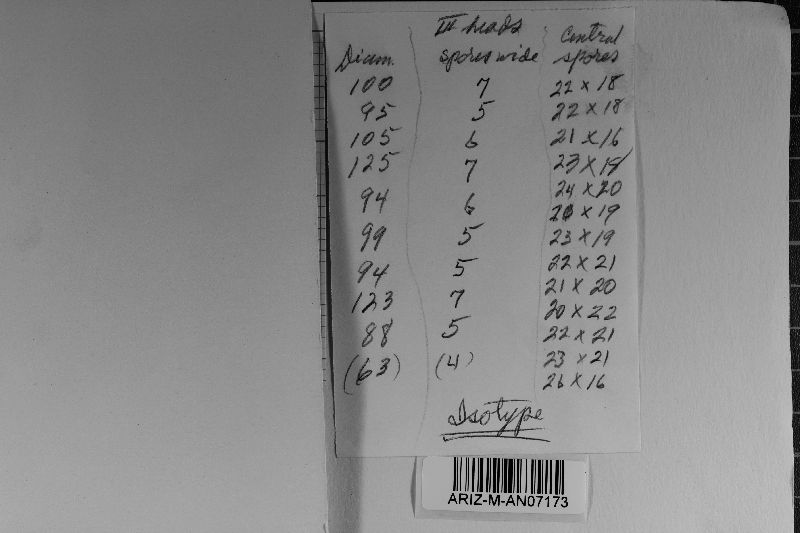 III heads
Diam. spores wide Central spores
100 7 22 x 18
95 5 22 x 18
105 6 21 x 16
125 7 23 x 19
94 6 24 x 20
99 5 20 x 19
94 5 23 x 19
123 7 22 x 21
88 5 21 x 20
(63) (4) 20 x 22
22 x 21
23 x 21
26 x 16
Isotype
ARIZ-M-AN07173